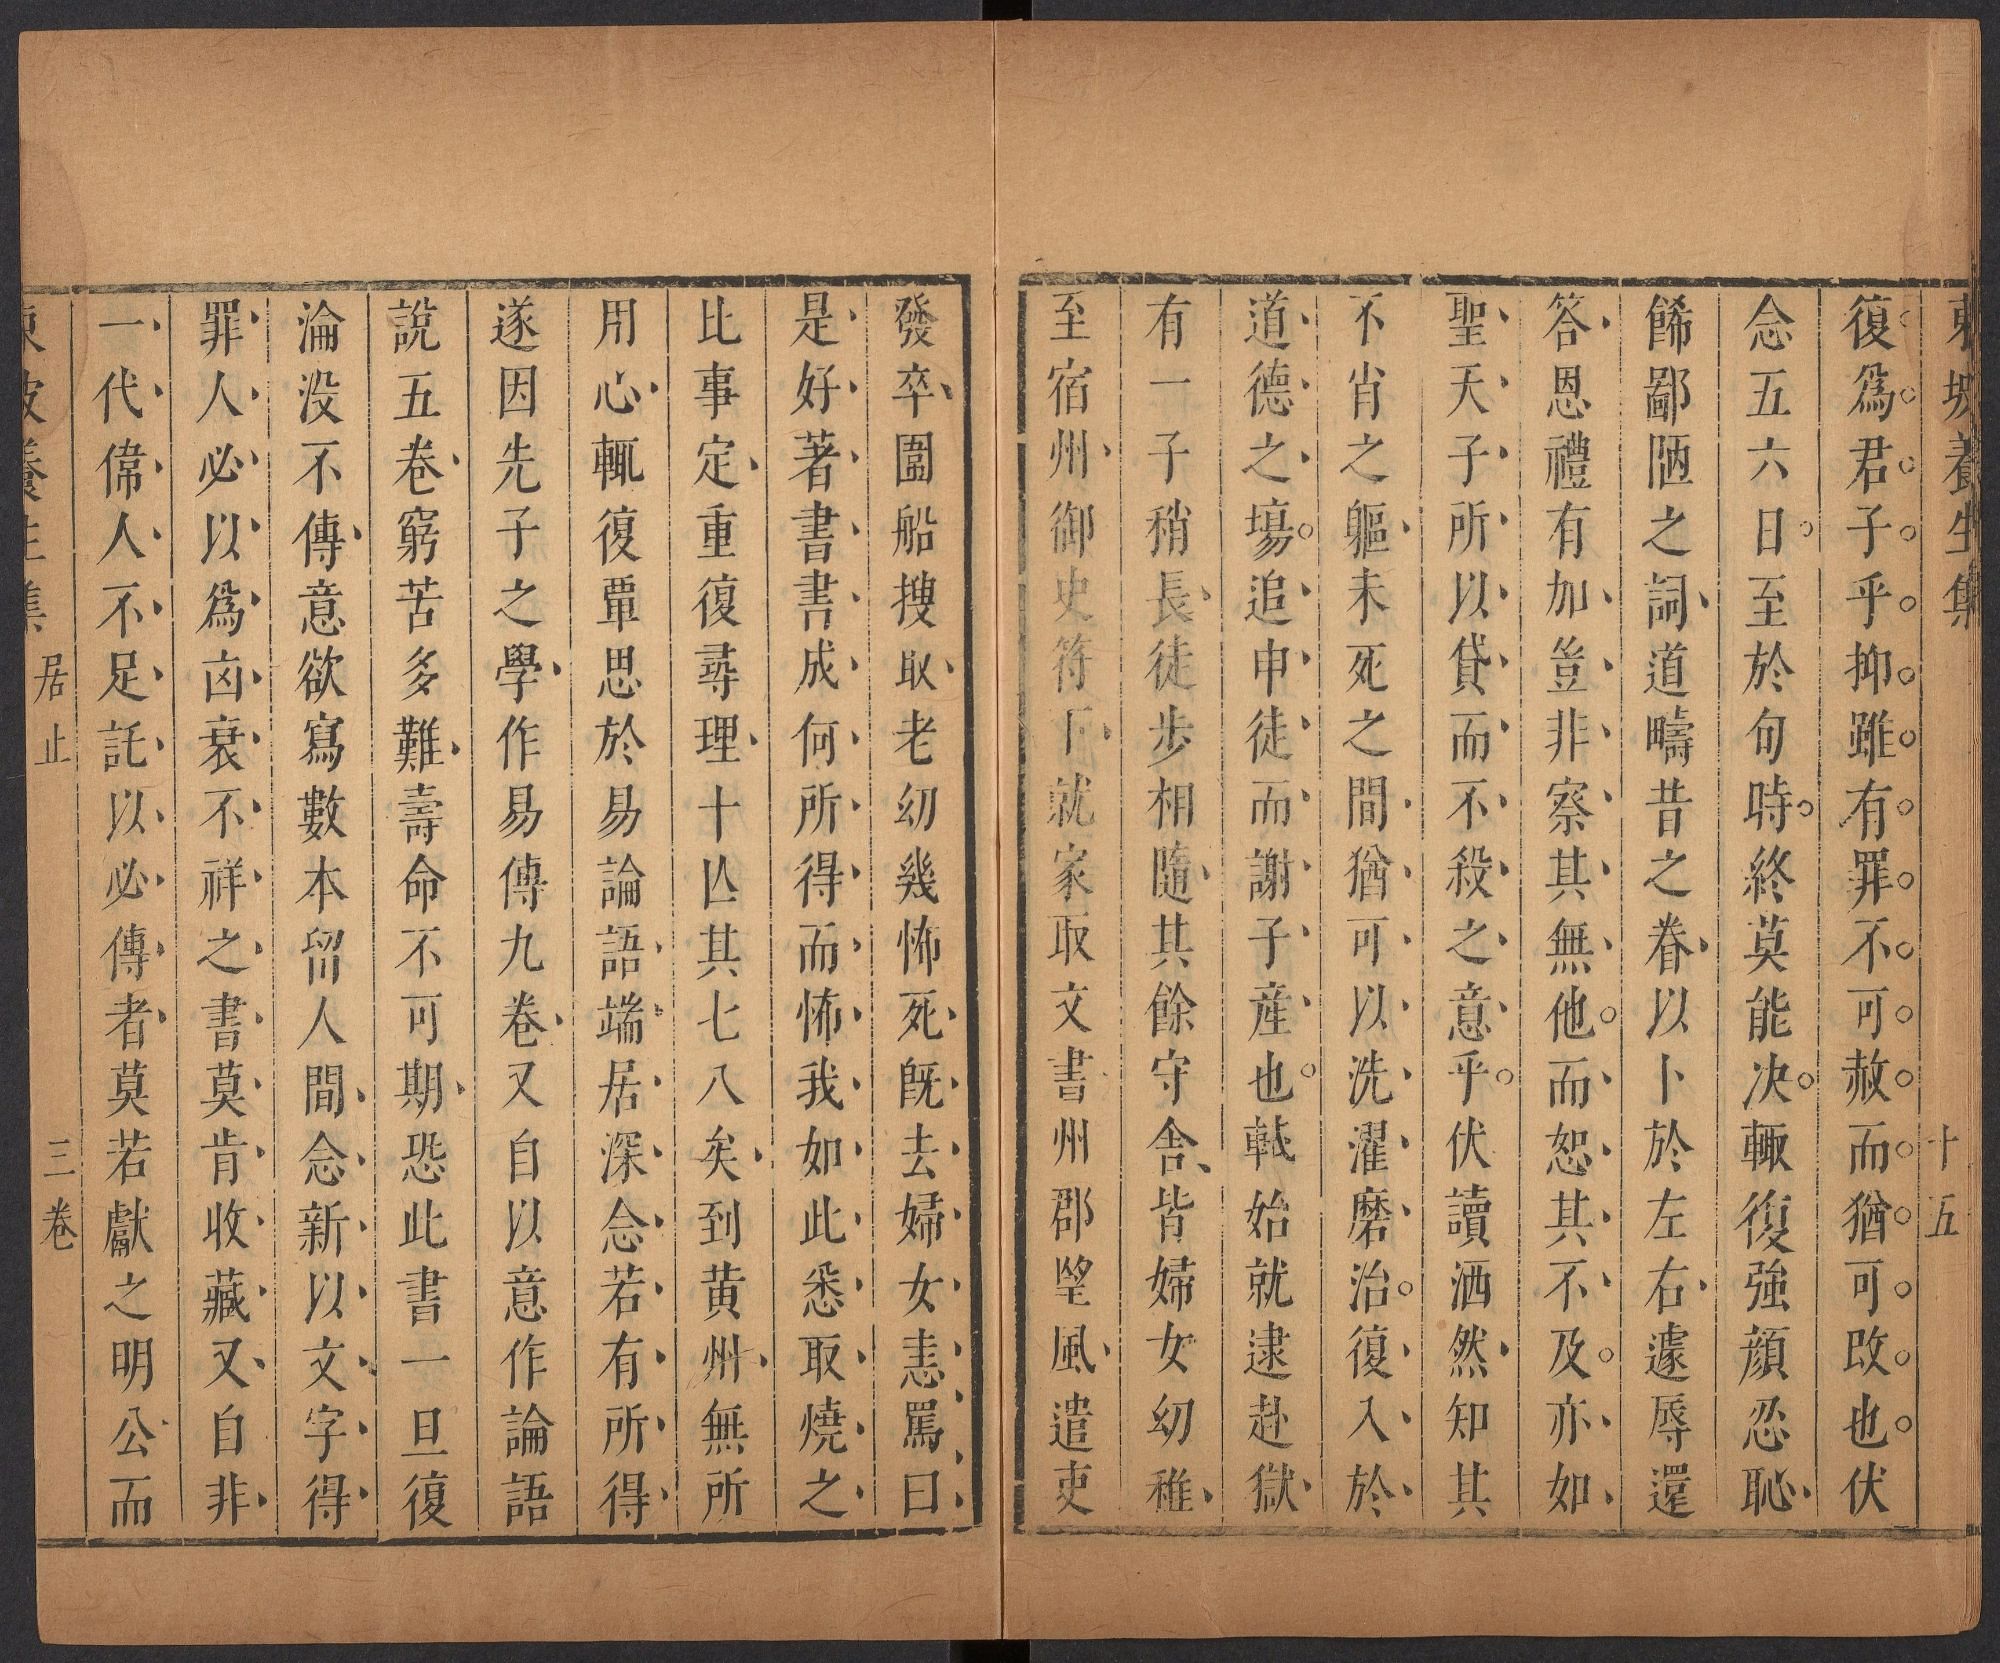 東坡養生集
十五
復爲君子乎抑雖有罪不可赦而猶可改也伏
念五六日至於旬時終莫能决輙復強顏忍恥
餙鄙陋之詞道疇昔之眷以卜於左右遽辱還
答恩禮有加豈非察其無他而恕其不及亦如
聖天子所以貸而不殺之意乎伏讀洒然知其
不肖之軀未死之間猶可以洗濯磨治復入於
道德之塲追申徒而謝子產也軾始就逮赴獄
有一子稍長徒步相隨其餘守舎皆婦女幼稚
至宿州御史符下就家取文書州郡望風遣吏
發卒圍船搜取老幼幾怖死旣去婦女恚罵曰
是好著書書成何所得而怖我如此悉取燒之
比事定重復尋理十亾其七八矣到黃州無所
用心輒復覃思於易論語端居深念若有所得
遂因先子之學作易傳九卷又自以意作論語
說五卷窮苦多難壽命不可期恐此書一旦復
淪没不傳意欲寫數本留人間念新以文字得
罪人必以爲凶衰不祥之書莫肯收藏又自非
一代偉人不足託以必傳者莫若獻之明公而
東坡養生集
居止
三卷